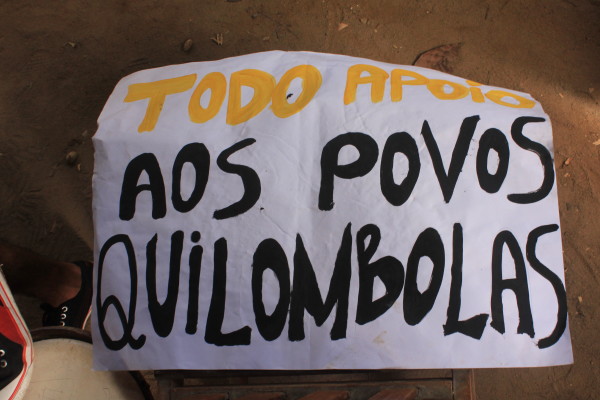 TODO APOiO
AOS POVOS
QUiLOMBOLAS